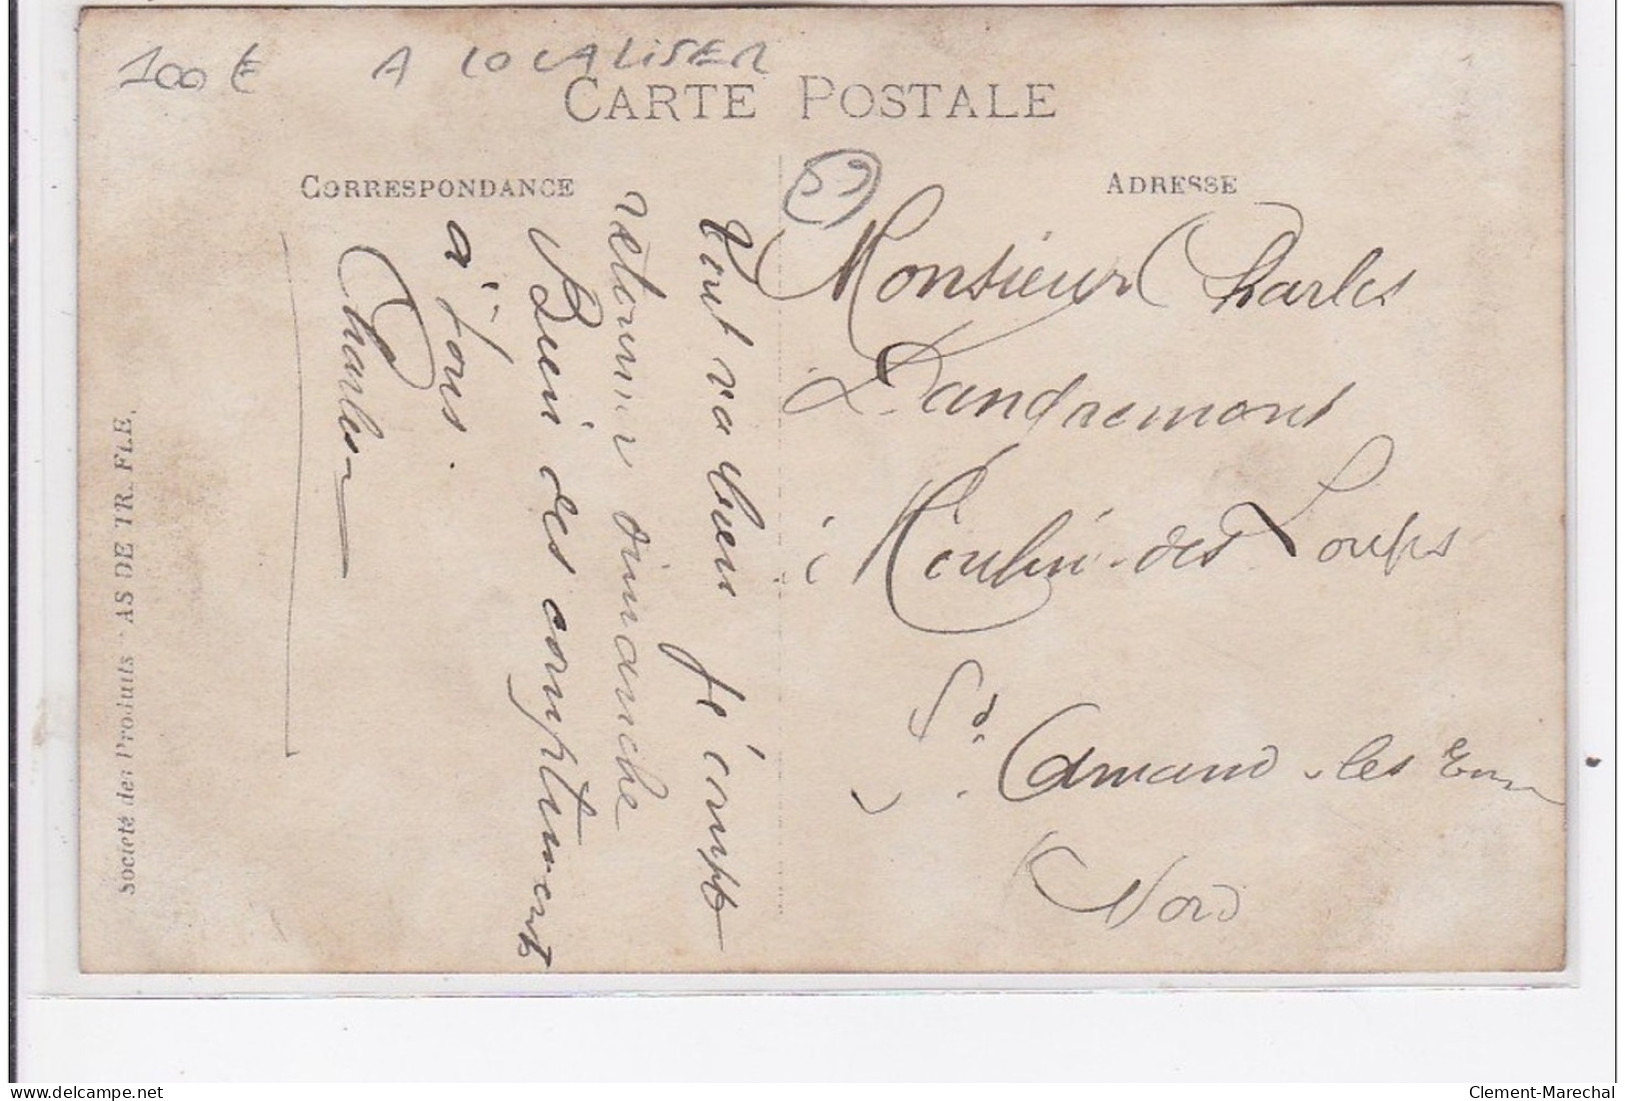 100 € A LOCALISER
CARTE POSTALE
CORRESPONDANCE
ADRESSE
59
Tout va bien Je compte
retourner dimanche
Bien des compliments
à tous.
Charles
Monsieur Charles
Dandremont
Moulin-des-Loups
St. Amand-les Eaux
Nord
Société des Produits "AS DE TRÈFLE.
delcampe.net
Clement-Marechal